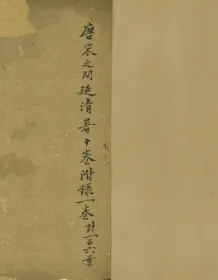 唐宋之問延清著十卷附錄一卷計一百六葉